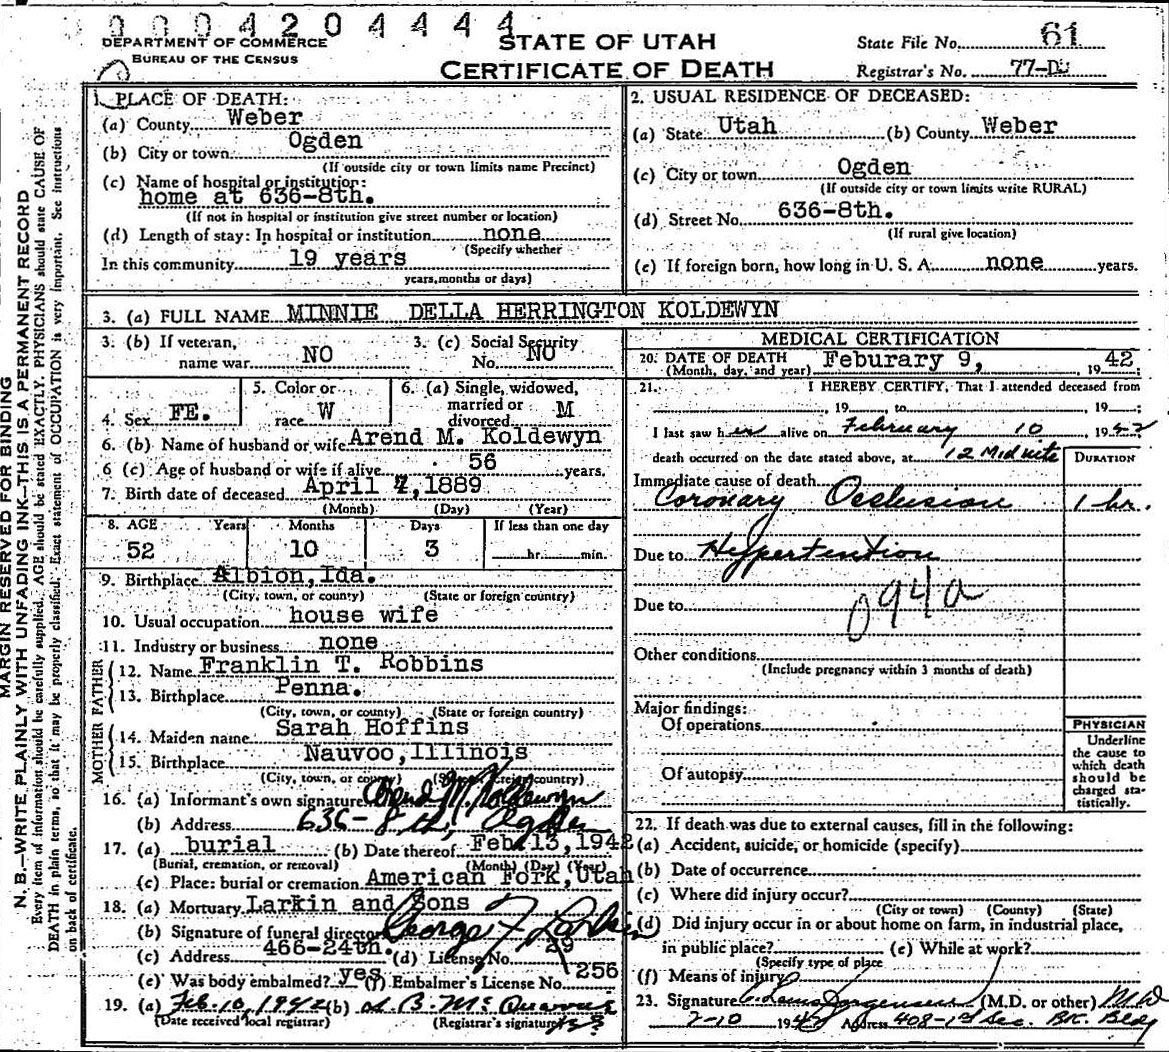 0004204444
DEPARTMENT OF COMMERCE
BUREAU OF THE CENSUS
STATE OF UTAH
CERTIFICATE OF DEATH
State File No. 61
Registrar's No. 77-DU
MARGIN RESERVED FOR BINDING
N. B.—WRITE PLAINLY WITH UNFADING INK—THIS IS A PERMANENT RECORD
Every item of information should be carefully supplied. AGE should be stated EXACTLY. PHYSICIANS should state CAUSE OF
DEATH in plain terms, so that it may be properly classified. Exact statement of OCCUPATION is very important. See instructions
on back of certificate.
1. PLACE OF DEATH:
(a) County Weber
(b) City or town Ogden
(If outside city or town limits name Precinct)
(c) Name of hospital or institution:
home at 636-8th.
(If not in hospital or institution give street number or location)
(d) Length of stay: In hospital or institution none
(Specify whether
In this community 19 years
years, months or days)
2. USUAL RESIDENCE OF DECEASED:
(a) State Utah (b) County Weber
(c) City or town Ogden
(If outside city or town limits write RURAL)
(d) Street No. 636-8th.
(If rural give location)
(e) If foreign born, how long in U. S. A. none years.
3. (a) FULL NAME MINNIE DELLA HERRINGTON KOLDEWYN
3. (b) If veteran, name war NO
3. (c) Social Security No. NO
4. Sex FE.
5. Color or race W
6. (a) Single, widowed, married or divorced M
6. (b) Name of husband or wife Arend M. Koldewyn
6 (c) Age of husband or wife if alive 56 years.
7. Birth date of deceased April 7, 1889
(Month) (Day) (Year)
8. AGE Years Months Days If less than one day
52 10 3 hr. min.
9. Birthplace Albion, Ida.
(City, town, or county) (State or foreign country)
10. Usual occupation house wife
11. Industry or business none
FATHER
12. Name Franklin T. Robbins
13. Birthplace Penna.
(City, town, or county) (State or foreign country)
MOTHER
14. Maiden name Sarah Hoffins
15. Birthplace Nauvoo, Illinois
(City, town, or county) (State or foreign country)
16. (a) Informant's own signature Arend M. Koldewyn
(b) Address 636-8 th, Ogden
17. (a) burial (b) Date thereof Feb. 13, 1942
(Burial, cremation, or removal) (Month) (Day) (Year)
(c) Place: burial or cremation American Fork, Utah
18. (a) Mortuary Larkin and Sons
(b) Signature of funeral director George F Larkin
(c) Address 466-24th. (d) License No. 29
(e) Was body embalmed? yes (f) Embalmer's License No. 256
19. (a) Feb. 10, 1942 (b)
(Date received local registrar) (Registrar's signature)
MEDICAL CERTIFICATION
20. DATE OF DEATH Feburary 9, 1942
(Month, day, and year)
21. I HEREBY CERTIFY, That I attended deceased from
, 19 , to , 19 ;
I last saw her alive on February 10 1942
death occurred on the date stated above, at 12 Midnite
DURATION
Immediate cause of death
Coronary Occlusion 1 hr.
Due to Hypertention
Due to 094a
Other conditions
(Include pregnancy within 3 months of death)
Major findings:
Of operations
Of autopsy
PHYSICIAN
Underline
the cause to
which death
should be
charged sta-
tistically.
22. If death was due to external causes, fill in the following:
(a) Accident, suicide, or homicide (specify)
(b) Date of occurrence
(c) Where did injury occur?
(City or town) (County) (State)
(d) Did injury occur in or about home on farm, in industrial place,
in public place? (e) While at work?
(Specify type of place
(f) Means of injury
23. Signature (M.D. or other) MD
2-10 1942 Address 408-1st Sec. BK. Bldg